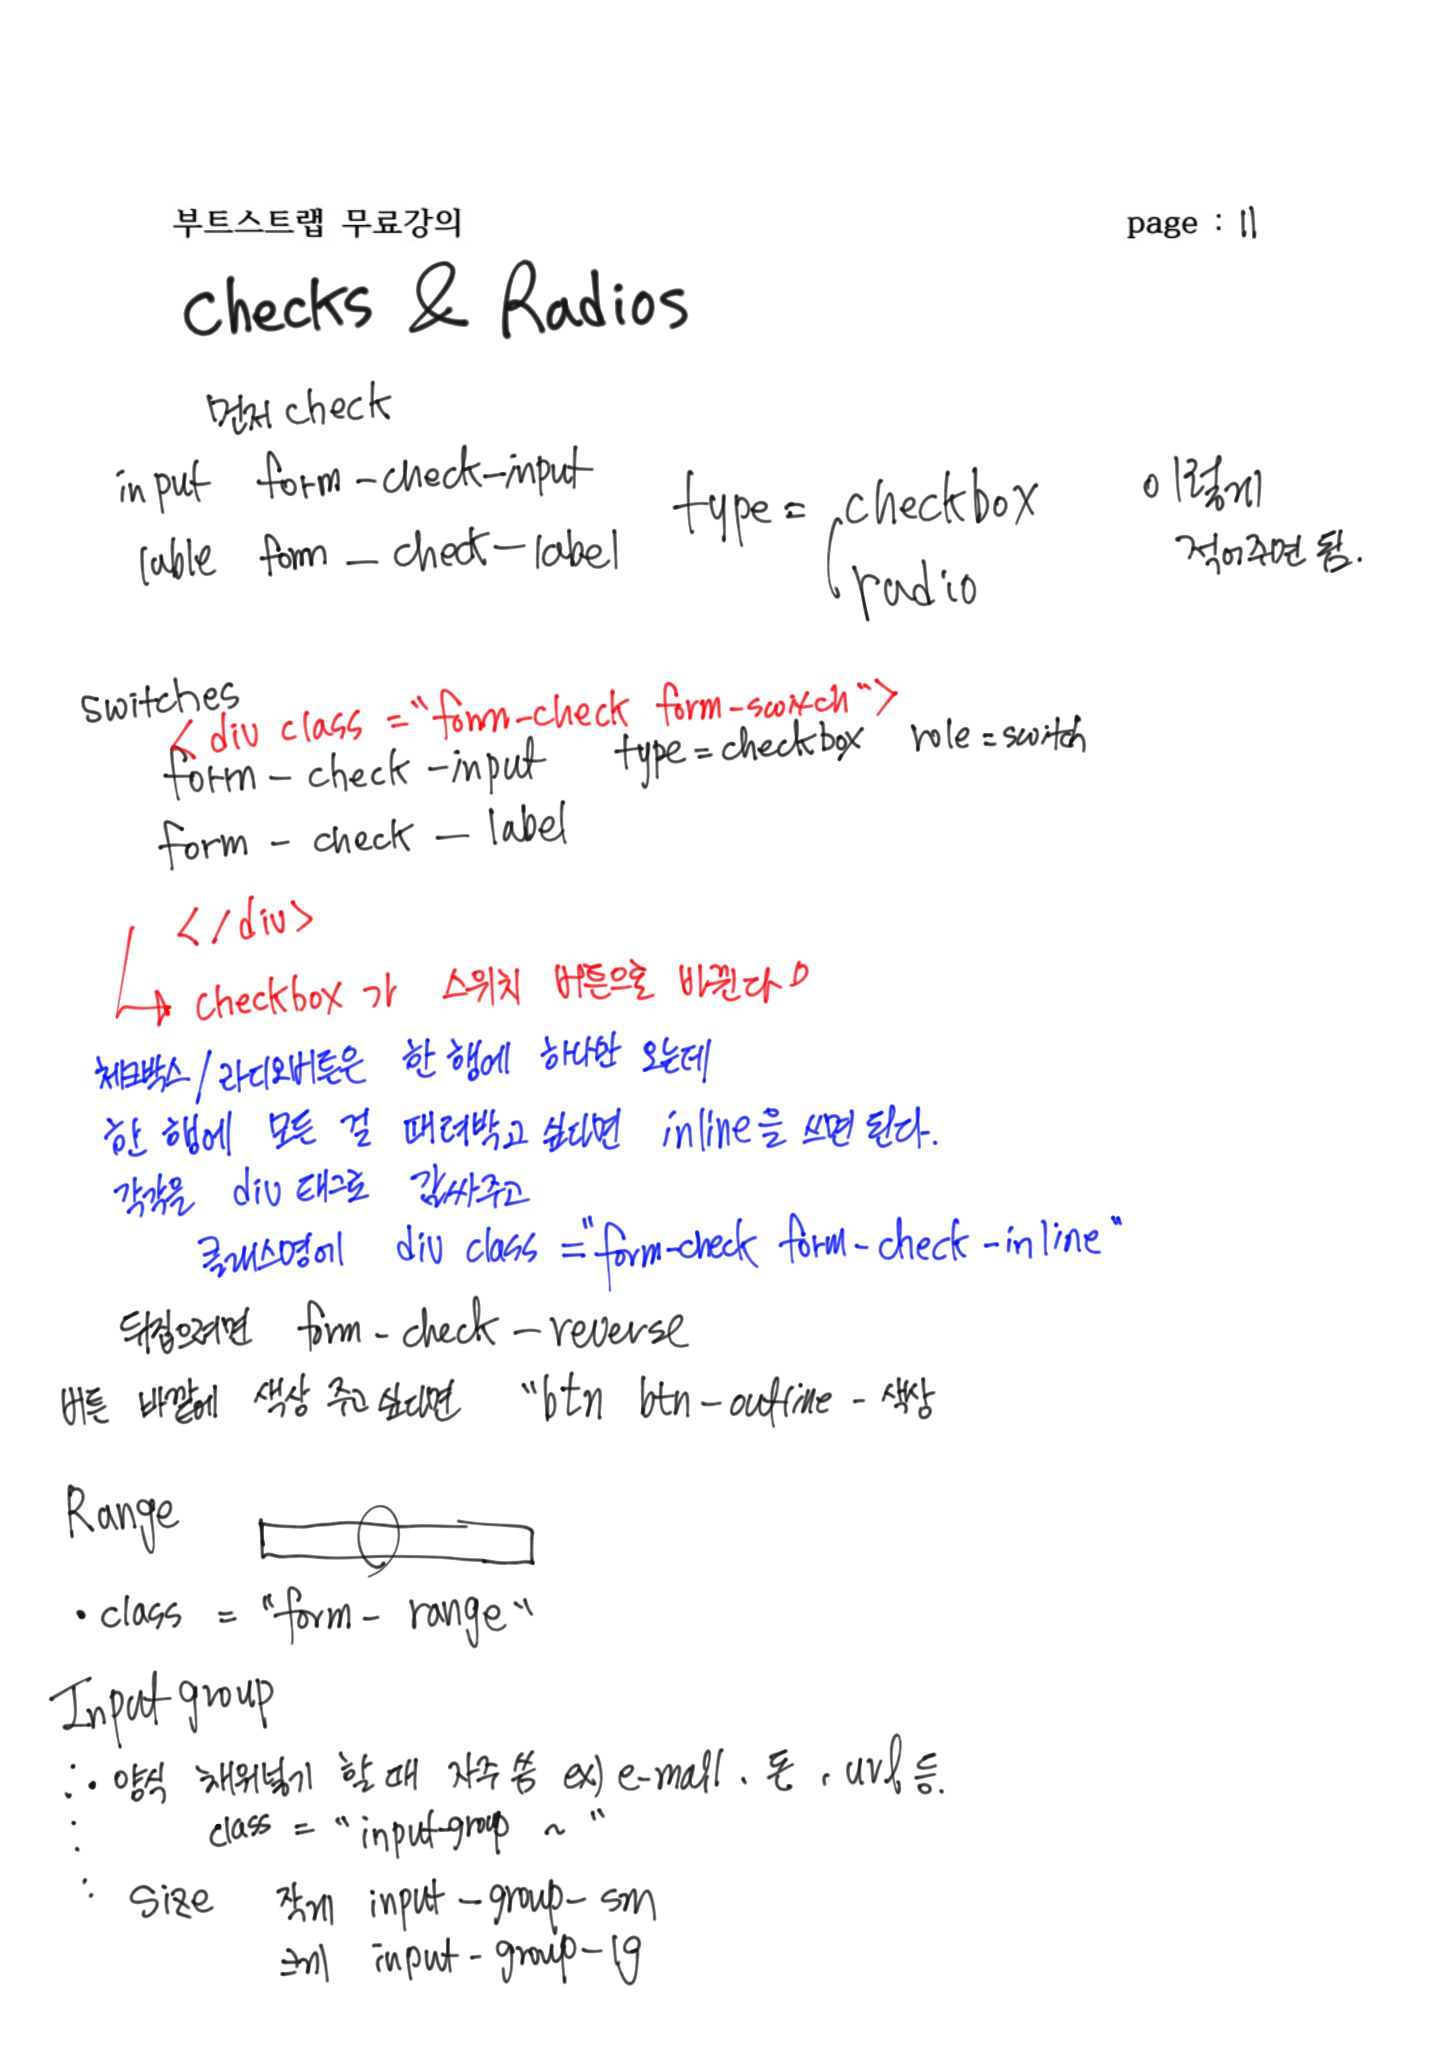 부트스트랩 무료강의 page : 11
checks & Radios
먼저 check
input form-check-input type = checkbox 이렇게
lable form-check-label radio 적어주면 됨.
switches
<div class="form-check form-switch">
form-check-input type=checkbox role=switch
form-check-label
</div>
checkbox가 스위치 버튼으로 바뀐다
체크박스/라디오버튼은 한 행에 하나만 오는데
한 행에 모든 걸 때려박고 싶다면 inline을 쓰면 된다.
각각을 div 태그로 감싸주고
클래스명에 div class="form-check form-check-inline"
뒤집으려면 form-check-reverse
버튼 바깥에 색상 주고 싶다면 "btn btn-outline-색상
Range
• class = "form-range"
Input group
• 양식 채워넣기 할 때 자주 씀 ex) e-mail, 돈, url 등.
class = "input-group ~"
size 작게 input-group-sm
크게 input-group-lg